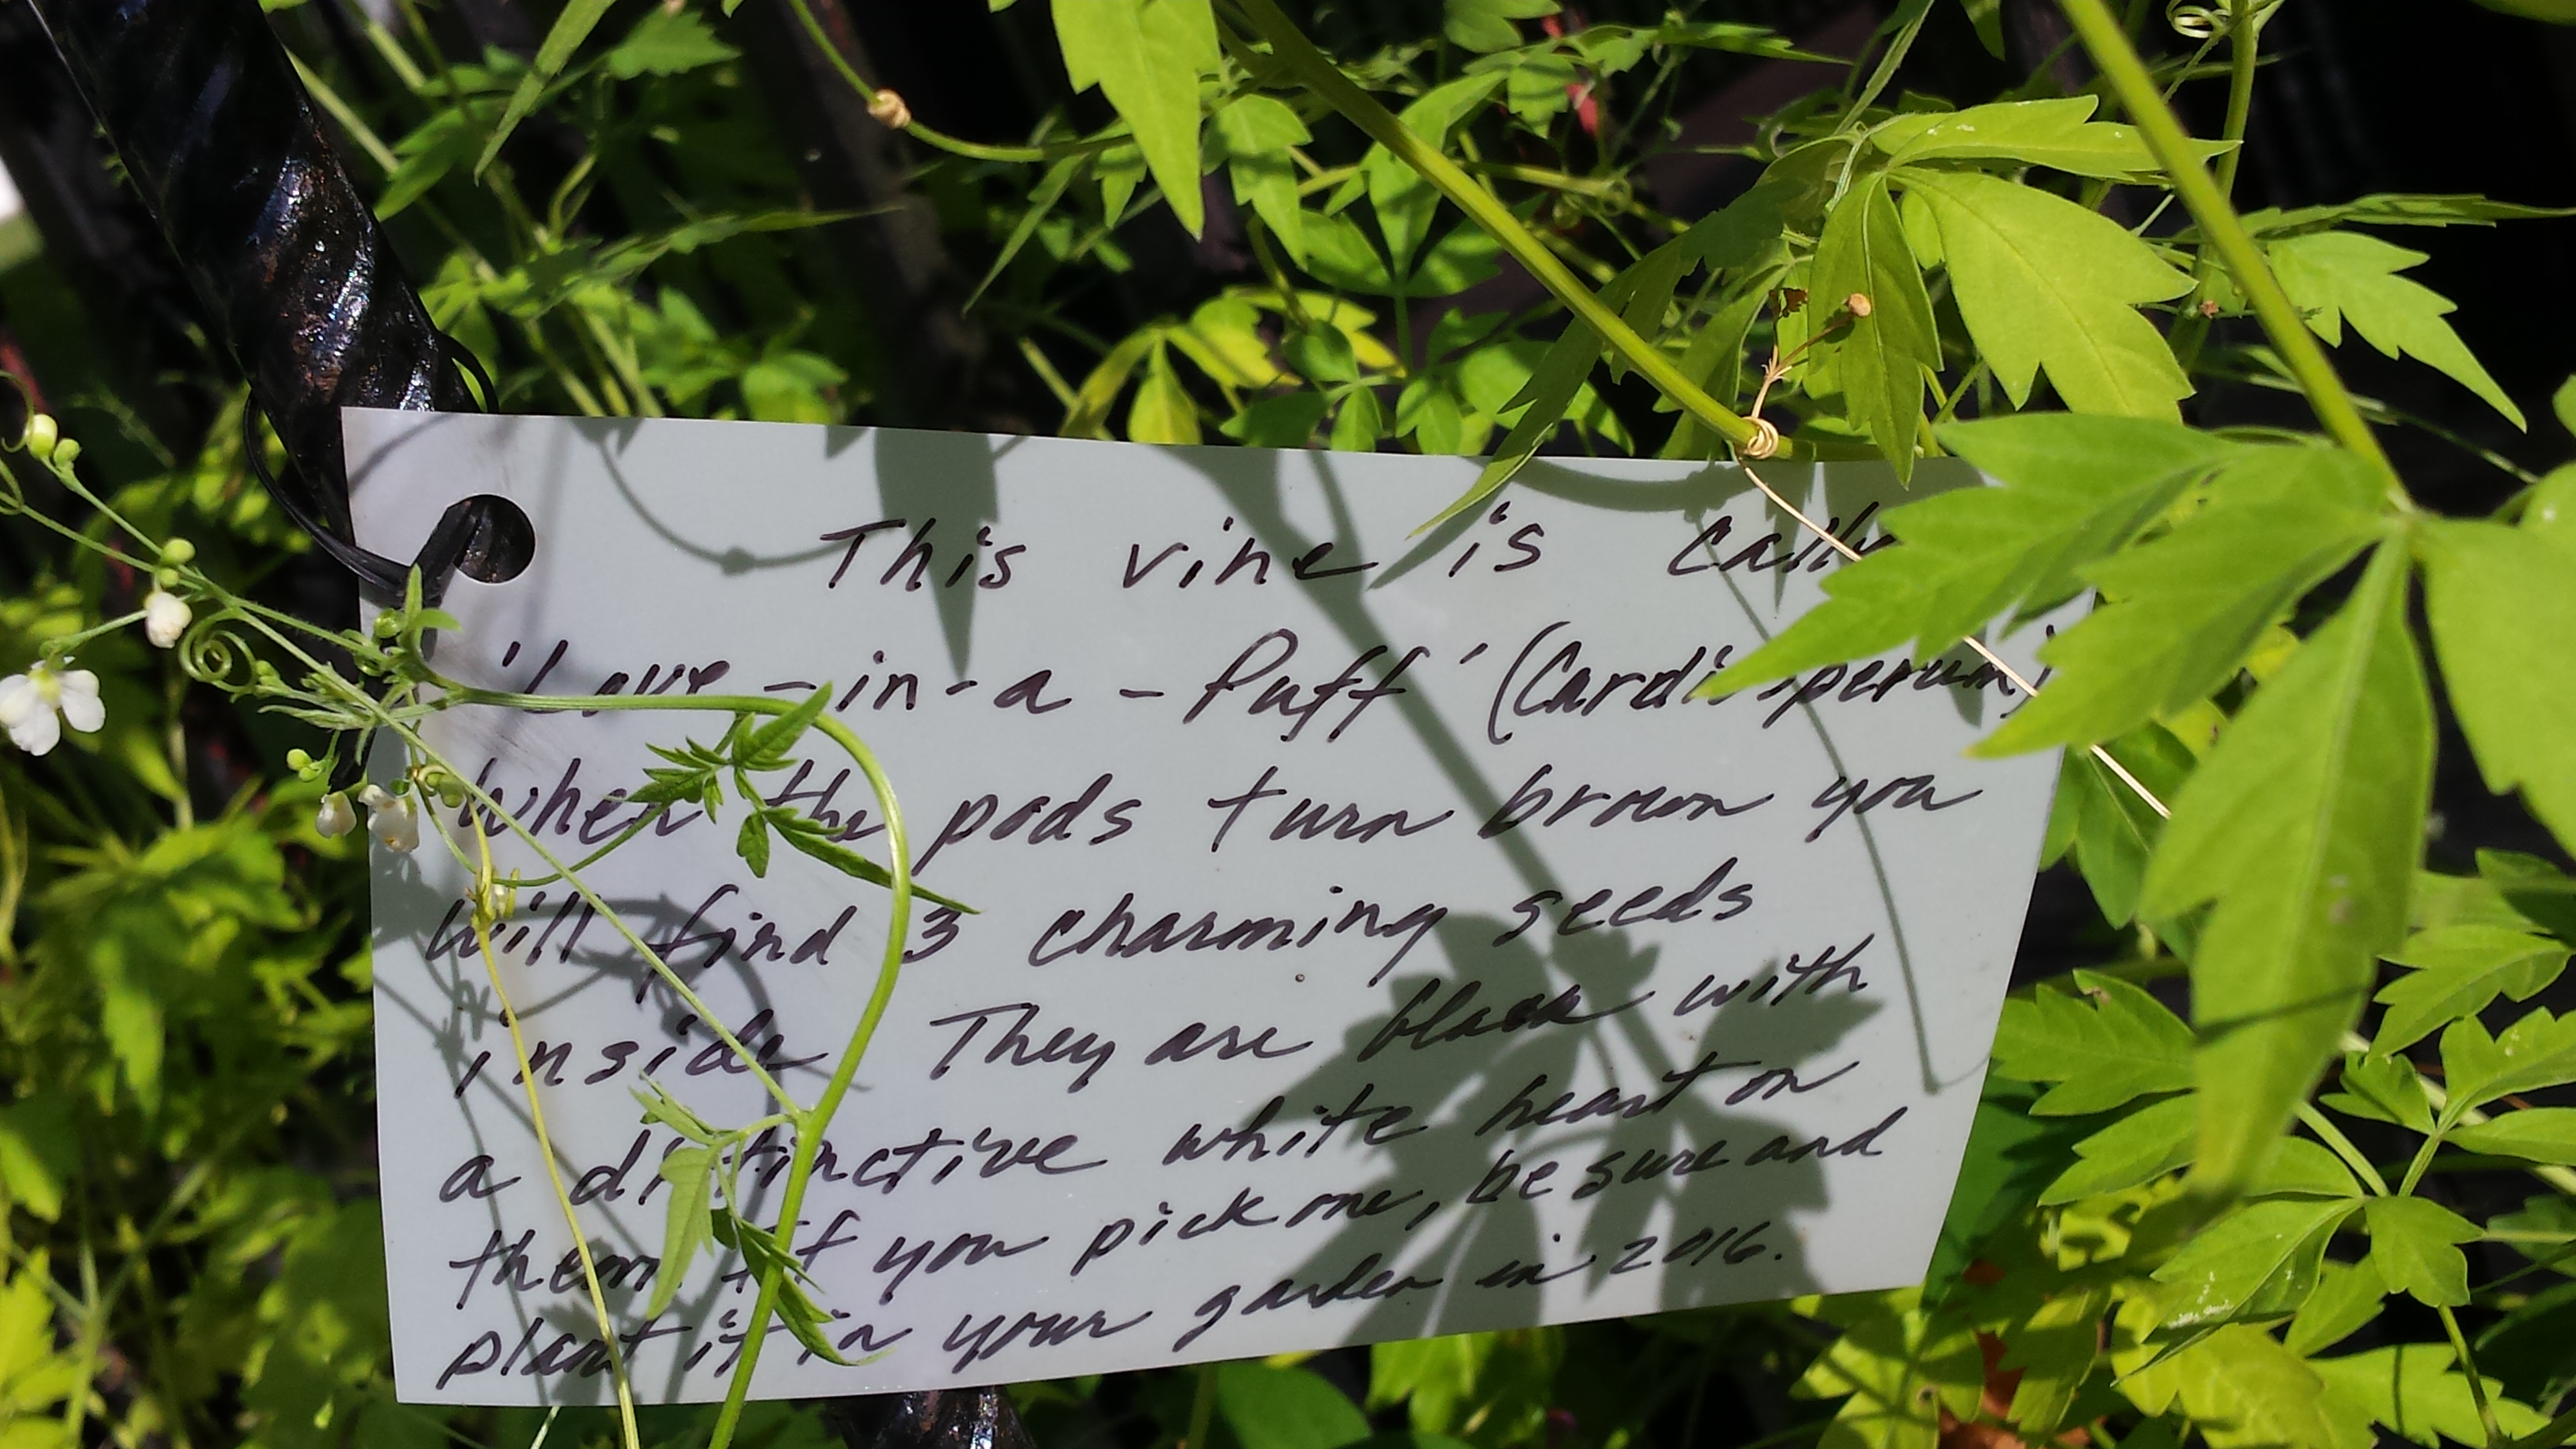 This vine is
'Love-in-a-Puff' (Cardiosperum)
When the pods turn brown you
will find 3 charming seeds
inside They are black with
a distinctive white heart on
them. If you pick one, be sure and
plant it in your garden in 2016.